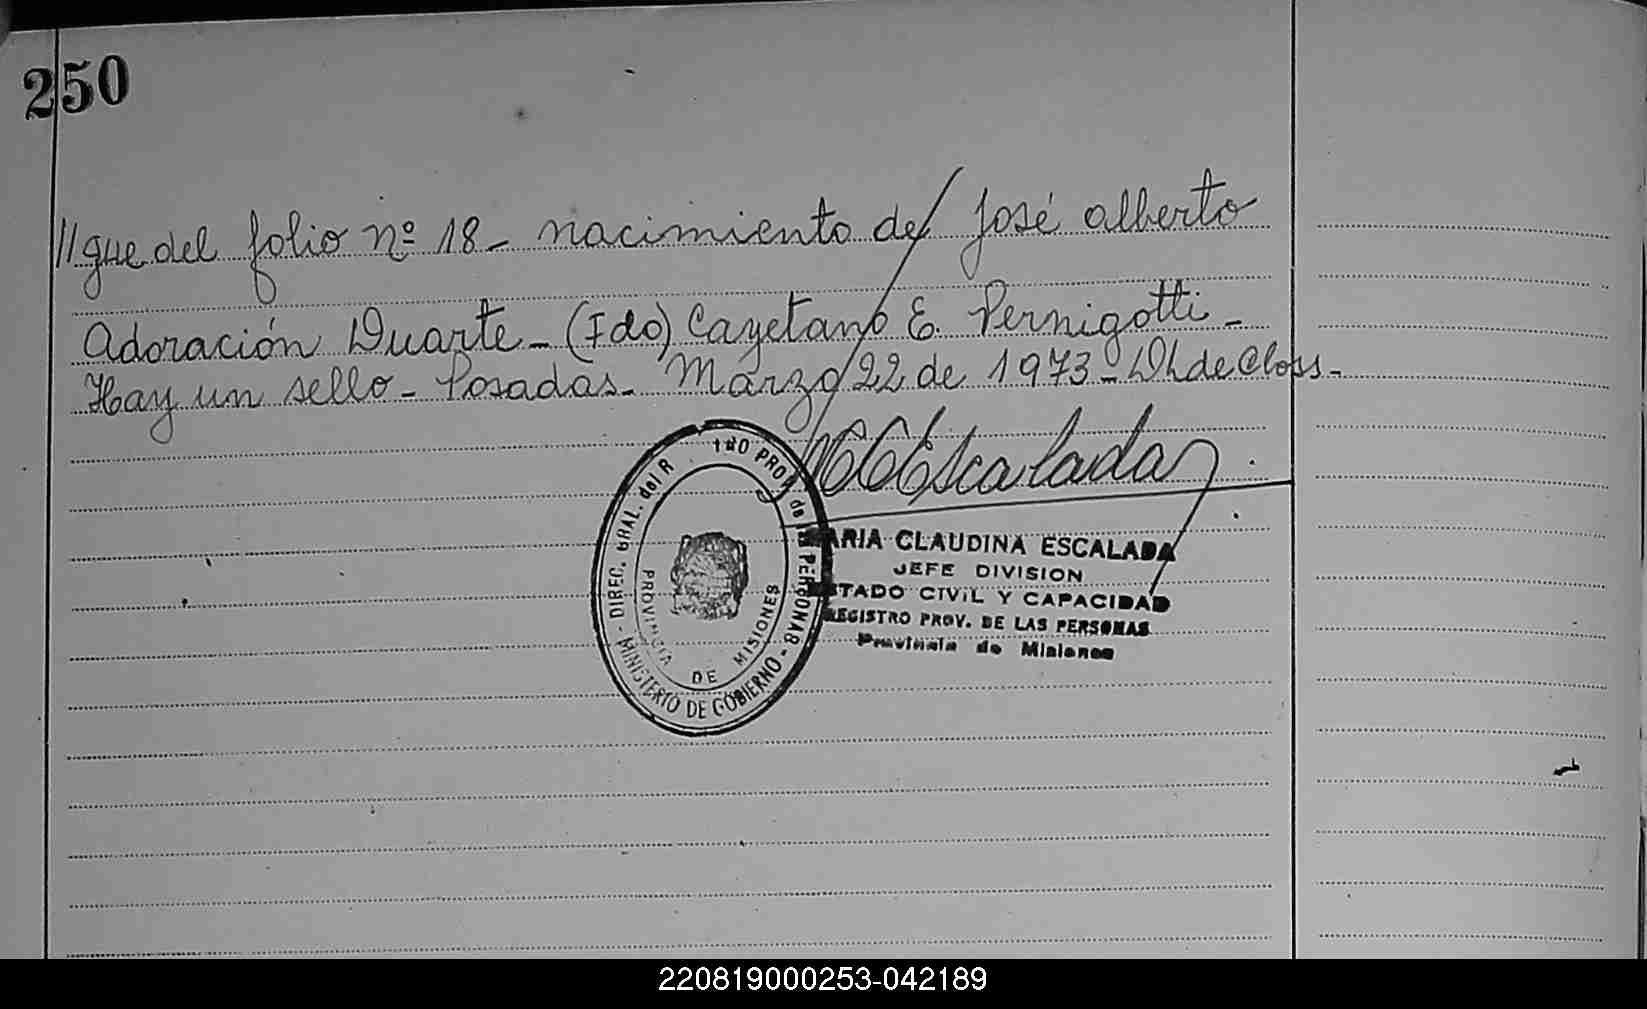 250
//gue del folio nº 18- nacimiento de José Alberto
Adoración Duarte- (Fdo) Cayetano E. Pernigotti-
Hay un sello- Posadas- Marzo 22 de 1973- de Closs-
Escalada
MARIA CLAUDINA ESCALADA
JEFE DIVISION
ESTADO CIVIL Y CAPACIDAD
REGISTRO PROV. DE LAS PERSONAS
Provincia de Misiones
DIREC. GRAL. del R PROV. de las PERSONAS -
MINISTERIO DE GOBIERNO -
PROVINCIA DE MISIONES
220819000253-042189